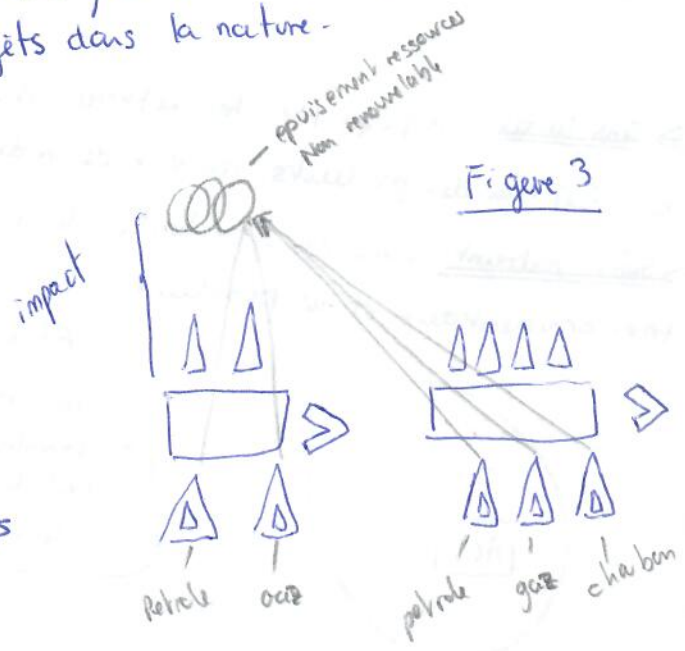 jèts dans la nature -
epuisement ressources
Non renouvelable
Figure 3
impact
s
Petrole
gaz
petrole
gaz
charbon